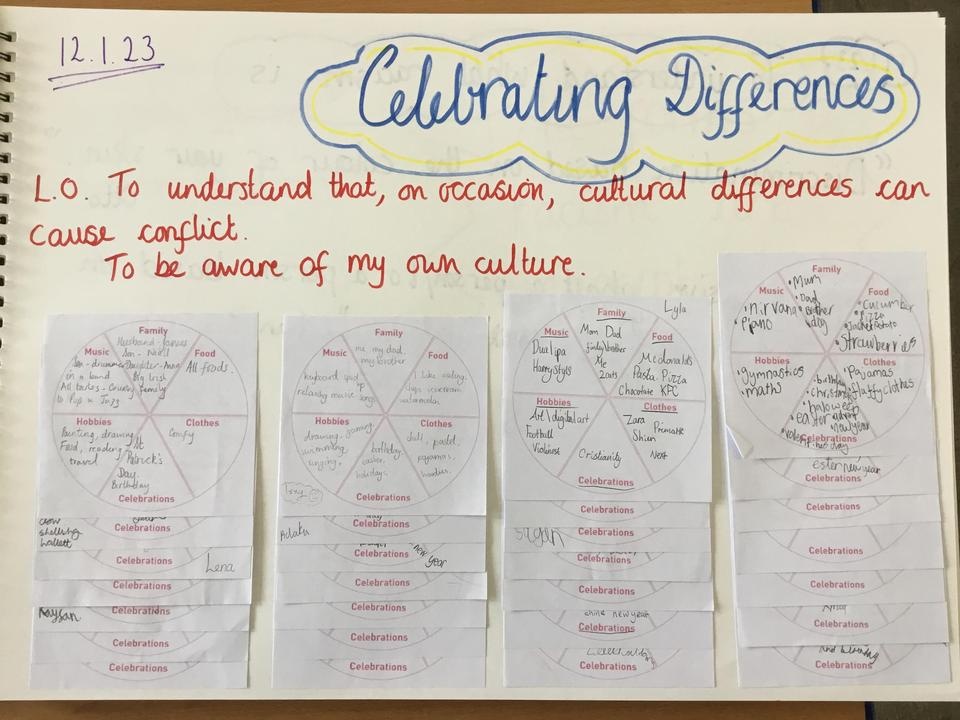 12.1.23
Celebrating Differences
L.O. To understand that, on occasion, cultural differences can
cause conflict.
To be aware of my own culture.
Family
Husband - James
Son - Niall
Daughter - Anna
Big Irish
family
Music
Son - drummer
in a band
All tastes -
to Pop & Jazz
Food
All foods.
Hobbies
Painting, drawing
Food, reading
travel
Clothes
Comfy
St
Patrick's
Day.
Birthday
Celebrations
Celebrations
Celebrations
Lena
Celebrations
Rayyan
Celebrations
Celebrations
Celebrations
Family
me, my dad,
my brother
Music
keyboard
relaxing music
Food
I like eating:
icecream
watermelon
Hobbies
drawing, gaming,
swimming
singing,
Clothes
pyjamas,
hoodies.
birthday
easter,
holidays.
Celebrations
Celebrations
Celebrations
new
year
Celebrations
Celebrations
Celebrations
Celebrations
Lyla
Family
Mom Dad
brother
Me
2cats
Music
Dua lipa
Harry Styls
Food
Mcdonalds
Pasta Pizza
Chocolate KFC
Hobbies
Art \ digital art
Football
Violinest
Clothes
Zara
Primark
Shien
Next
Cristianity
Celebrations
Celebrations
Celebrations
Celebrations
new year
Celebrations
Celebrations
Family
Mum
Dad
Brother
dog
Music
nirvana
Piano
Food
Cucumber
Pizza
Jacket Potato
Strawberries
Hobbies
gymnastics
math
Clothes
Pajamas
fluffy clothes
birthday
christmas
haloween
easter
new year
Celebrations
ester new year
Celebrations
Celebrations
Celebrations
Celebrations
and birthday
Celebrations